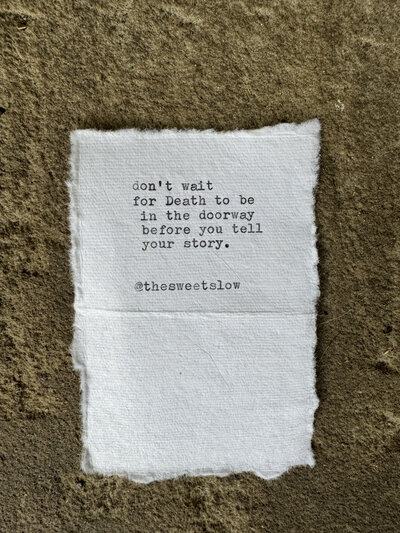 don't wait
for Death to be
in the doorway
before you tell
your story.
@thesweetslow